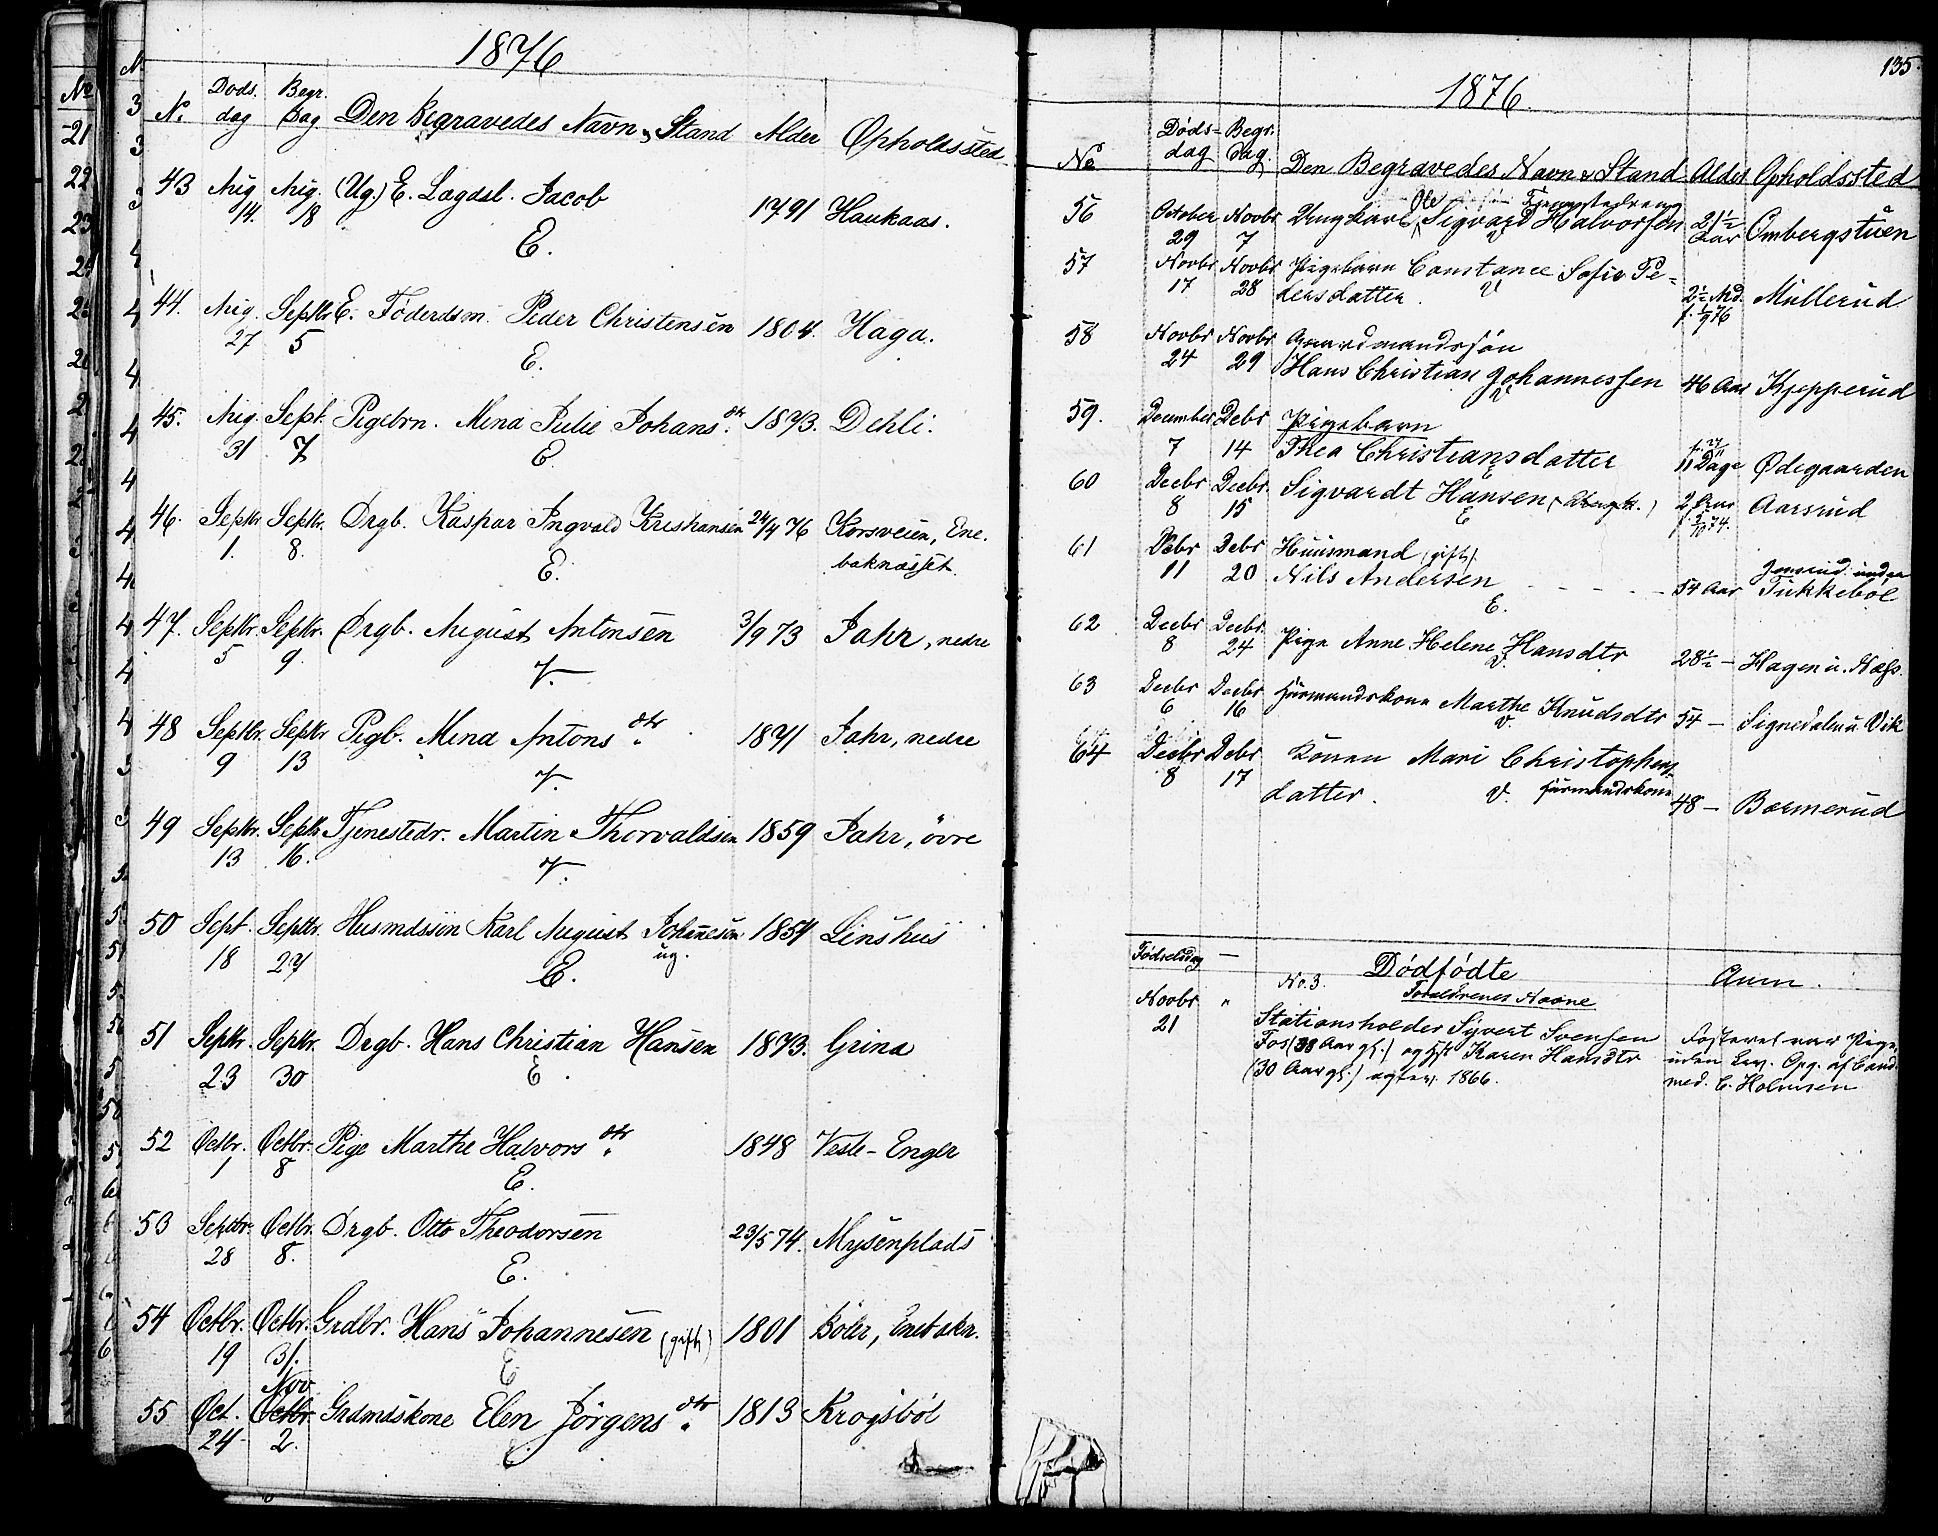 1876
No. Døds. dag Begr. Dag Den Begravedes Navn & Stand Alder Opholdssted
43 Aug. 14. Aug. 18 (Ug.) E. Lægdsl. Jacob 1791 Haukaas.
E.
44. Aug. 27 Septbr. 5 E. Föderdsm. Peder Christensen 1804. Haga.
E.
45. Aug. 31 Sept. 7 Pigebrn. Mina Julie Johansdtr. 1873. Dehli.
E.
46. Septbr. 1. Septbr. 8. Drgb. Kaspar Ingvald Kristiansen 24/4 76 Korsveien, Ene-
baknæsset.
E.
47. Septbr. 5 Septbr. 9. Drgb. August Antonsen 3/9 73 Jahr, nedre
V.
48 Septbr. 9 Septbr 13 Pigb. Mina Antonsdtr. 1871 Jahr, nedre
V.
49 Septbr. 13 Septbr 16. Tjenestedr. Martin Thorvaldsen 1859 Jahr, övre
V.
50 Sept. 18 Septbr. 27 Husmdssön Karl August Johannesen 1854 Linshus
ug.
E.
51 Septbr. 23 Septbr. 30 Drgb. Hans Christian Hansen 1873. Grina
E.
52 Octbr. 1 Octbr. 8 Pige Marthe Halvorsdtr. 1848 Vesle-Enger
E.
53 Septbr. 28 Octbr. 8. Drgb. Otto Theodorsen 23/5 74. Mysenplads
E.
54 Octbr. 19 Octbr. 31. Grdbr. Hans Johannesen (gift) 1801 Böler, Enebakn.
E
Nov
55 Oct. 24 Octbr. 2. Grdmdskone Elen Jörgensdtr. 1813 Krogsböl
E.
135.
1876.
No Døds-dag Begr. Dag. Den Begravedes Navn & Stand Alder Opholdssted
Ole Tjenestedreng
56 October 29 Novbr 7 Ungkarl Sigvard Halvorsen 21½ Aar Ombergstuen
V
57 Novbr 17 Novbr 28 Pigebarn Constance Sofie Pe-
dersdatter. V 2½ Md. Müllerud
58 Novbr 24 Novbr 29 Gaardmandssøn
Hans Christian Johannessen 46 Aar Kjepperud
V
59. December 7 Decbr 14 Pigebarn
Thea Christiansdatter 11 Dage Ødegaarden
E
60 Decbr 8 Decbr. 15 Sigvardt Hansen 2 Aar Aarsrud
E
61 Decbr 11 Decbr 20 Huusmand (gift).
Nils Andersen 54 Aar Jonsrud under
Tukkebøl
E.
62 Decbr 8 Decbr. 24 Pige Anne Helene Hansdtr 28½ — Hagen u. Næs.
V.
63 Decbr 6 Decbr 16 Huusmandskone Marthe Knudsdtr 54 — Signedalen u. Vik
V.
64 Decbr 8 Decbr 17 Konen Mari Christophers-
datter. V. Huusmandskone 48 — Bærmerud
Fødselsdag — Dødfødte Anm.
No. 3. Forældrenes Navne
Novbr 21 " Stationsholder Syvert Svensen
Fos (38 Aar gl.) og Hst Karen Hansdtr
(30 Aar gl.) egtev. 1866.
Fosteret var Pige,
uden Lev. Opg. af Cand.
med. C. Holmsen